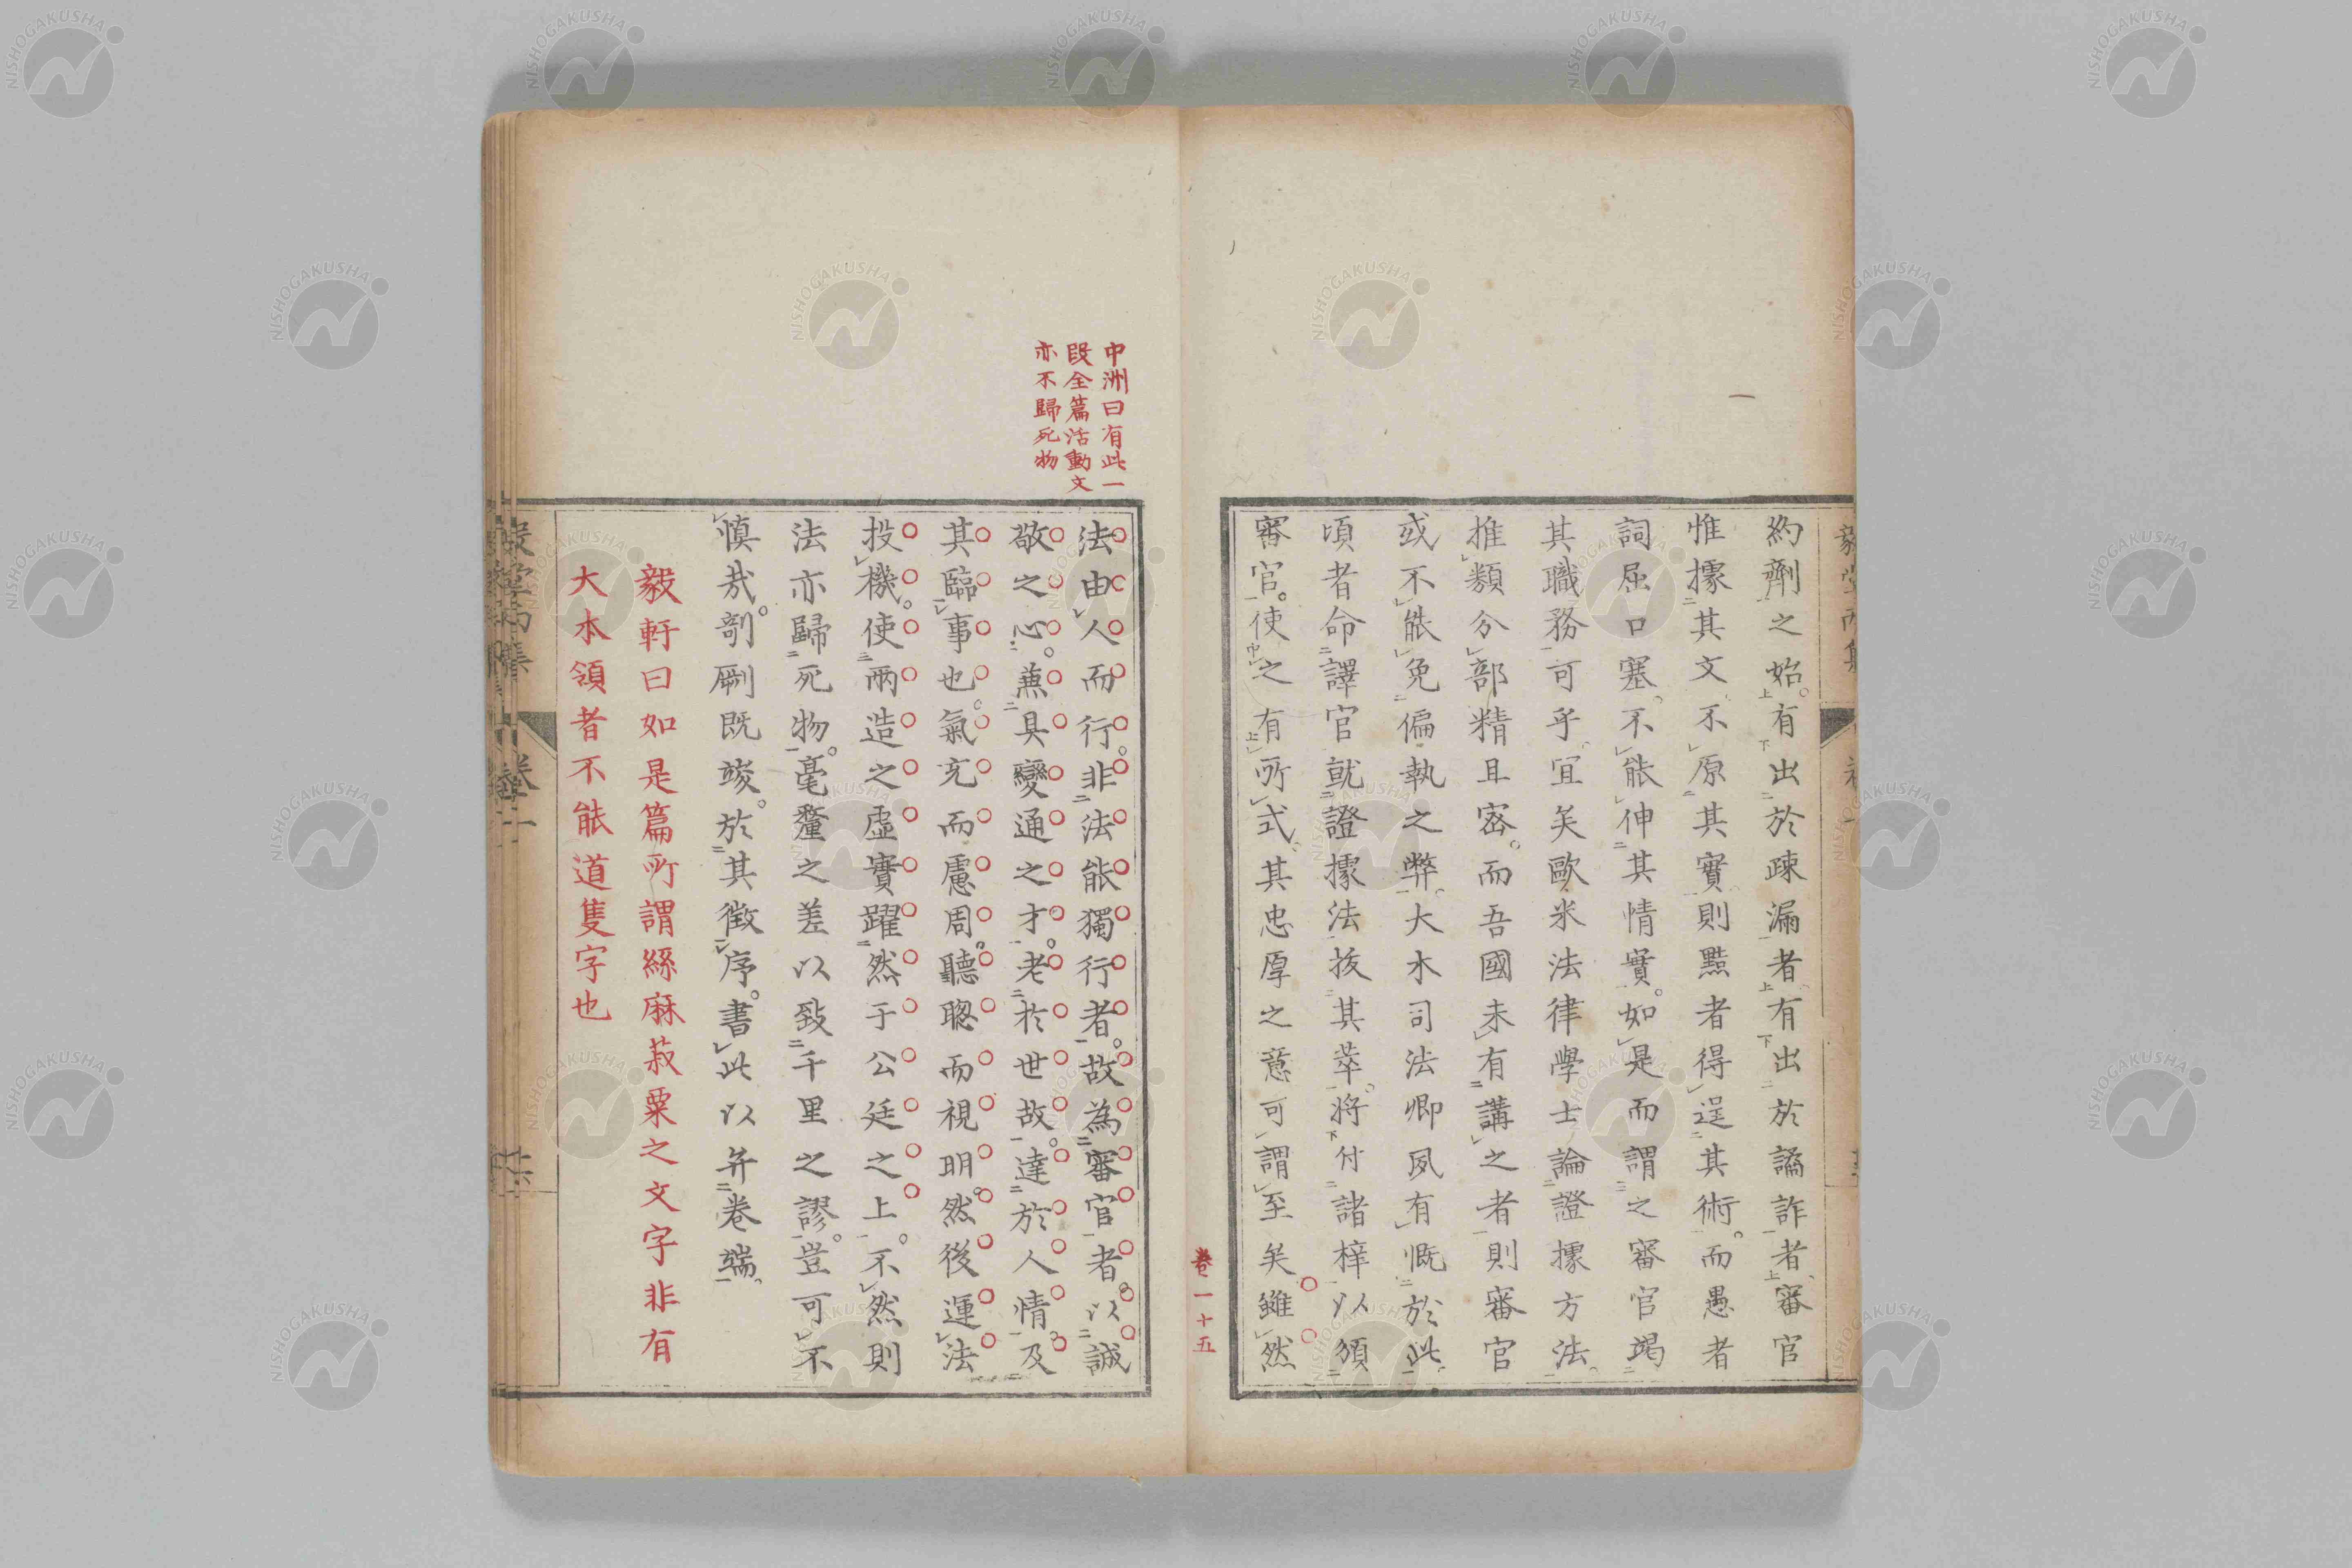 約劑之始有出於疎漏者有出於譎詐者審官
惟據其文不原其實則黠者得逞其術而愚者
詞屈口塞不能伸其情實如是而謂之審官竭
其職務可乎宜矣歐米法律學士論證據方法
推類分部精且密而吾國未有講之者則審官
或不能免偏執之弊大木司法卿夙有慨於此
頃者命譯官就證據法抜其萃将付諸梓以頒
審官使之有所式其忠厚之意可謂至矣雖然
卷一十五
中洲曰有此一
段全篇活動文
亦不歸死物
法由人而行非法能獨行者故為審官者以誠
敬之心兼具變通之才老於世故達於人情及
其臨事也氣充而慮周聽聰而視明然後運法
投機使兩造之虛實躍然于公廷之上不然則
法亦歸死物毫釐之差以致千里之謬豈可不
慎哉剞劂既竣於其徴序書此以弁巻端
毅軒曰如是篇所謂絲麻菽粟之文字非有
大本領者不能道隻字也
十六
NISHOGAKUSHA